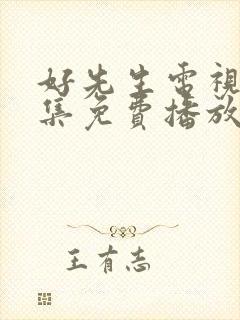 好先生電視
集免費播放
王有志